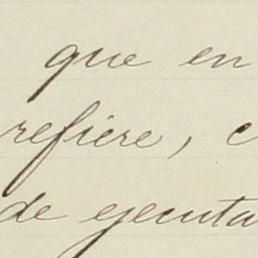 que en
refiere, c
de ejecuta